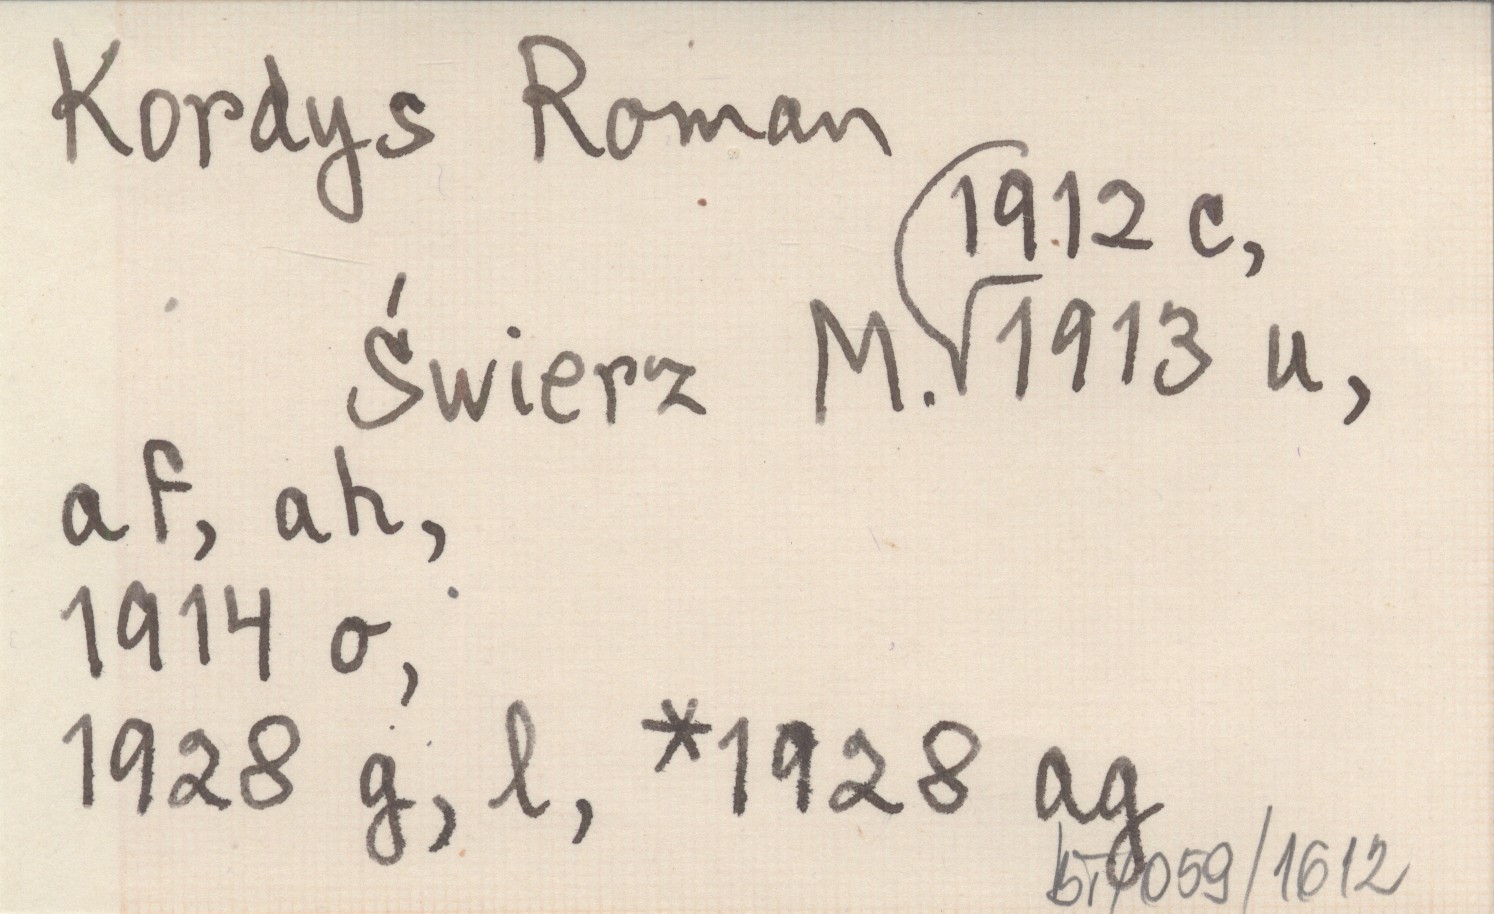 Kordys Roman
1912 c,
Świerz M. 1913 u,
af, ah,
1914 o,
1928 g, l, *1928 ag
059/1612